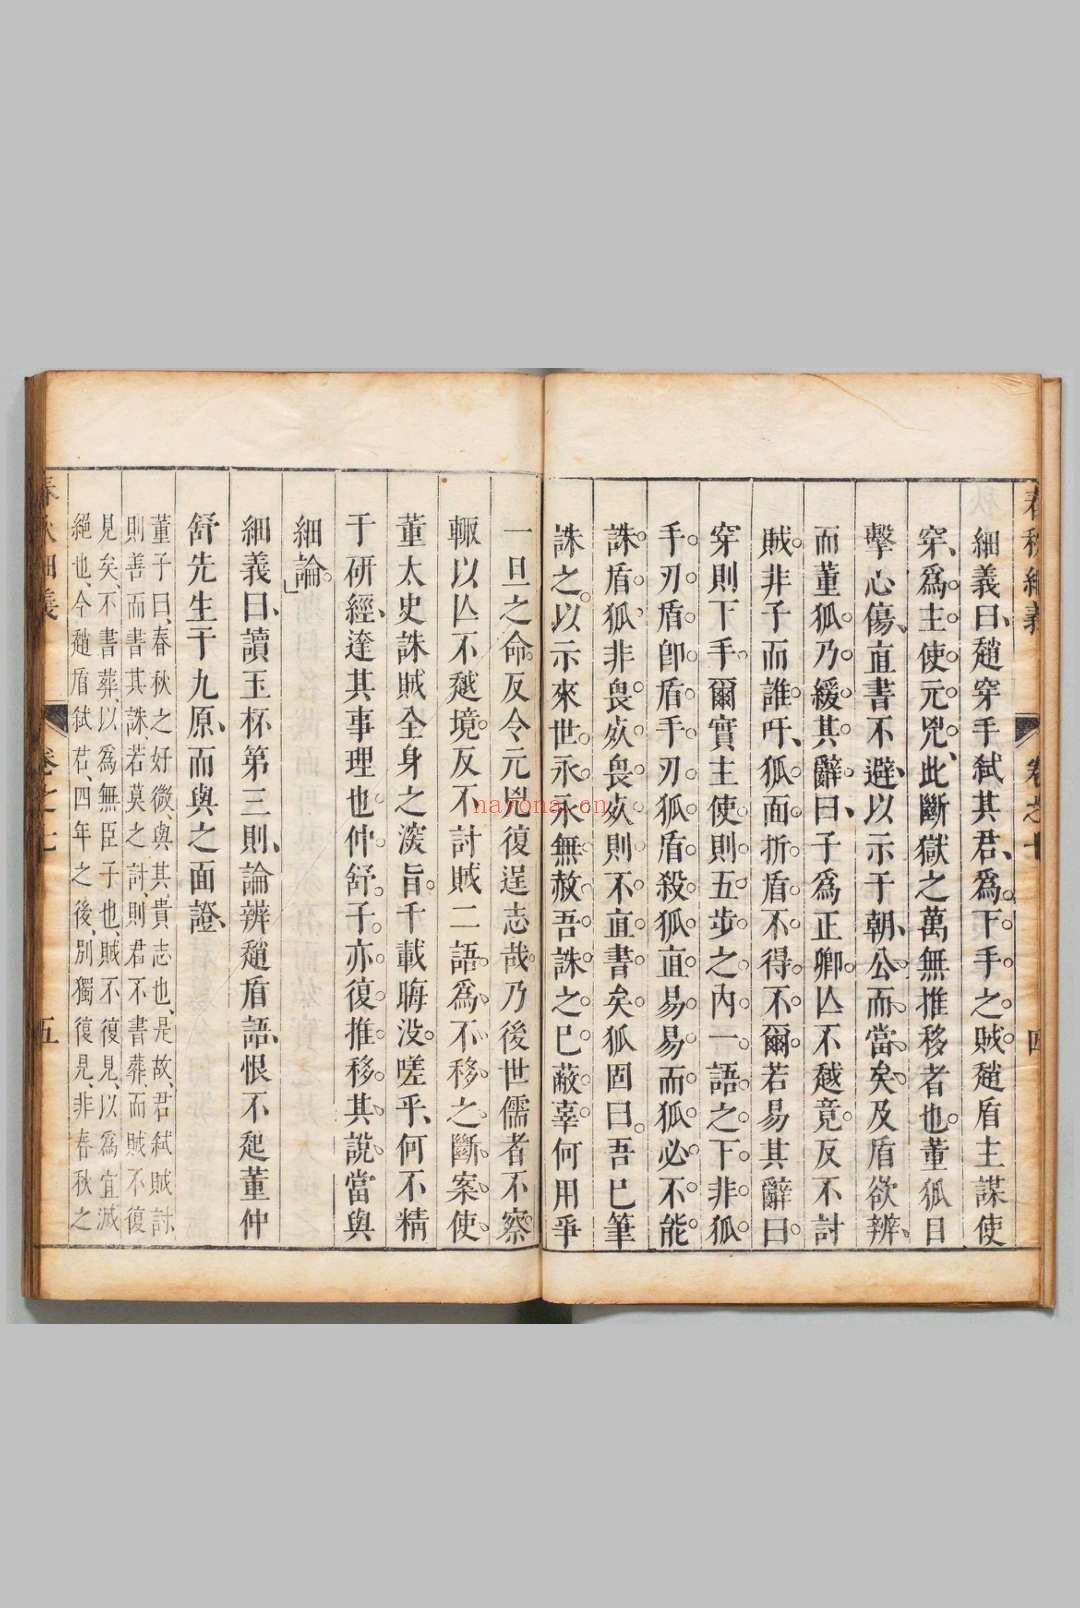 春秋細義
卷之七
四
細義曰、趙穿手弑其君、爲下手之賊。趙盾主謀使
穿、爲主使元兇、此斷獄之萬無推移者也。董狐目
擊心傷、直書不避、以示于朝、公而當矣、及盾欲辨、
而董狐乃緩其辭曰、子爲正卿。亾不越竟。反不討
賊。非子而誰。吁、狐面折盾不得不爾。若易其辭曰。
穿則下手。爾實主使。則五步之內一語之下。非狐
手刃盾。卽盾手刃狐。盾殺狐。直易易。而狐必不能
誅盾。狐非畏死。畏死則不直書矣。狐固曰。吾巳筆
誅之。以示來世。永永無赦。吾誅之巳蔽辜。何用爭
一旦之命。反令元兇復逞志哉。乃後世儒者不察。
輙以亾不越境。反不討賊二語。爲不移之斷案、使
董太史誅賊全身之深旨。千載晦没。嗟乎、何不精
于研經、逹其事理也。仲舒子。亦復推移其說、當與
細論。
細義曰、讀玉杯第三則、論辨趙盾語、恨不起董仲
舒先生于九原、而與之面證、
董子曰、春秋之好微、與其貴志也、是故、君弑賊討、
則善而書其誅、若莫之討、則君不書葬、而賊不復
見矣、不書葬、以爲無臣子也、賊不復見、以爲宜滅
絕也、今趙盾弑君、四年之後、別獨復見、非春秋之
春秋細義
卷之七
五
nayona.cn